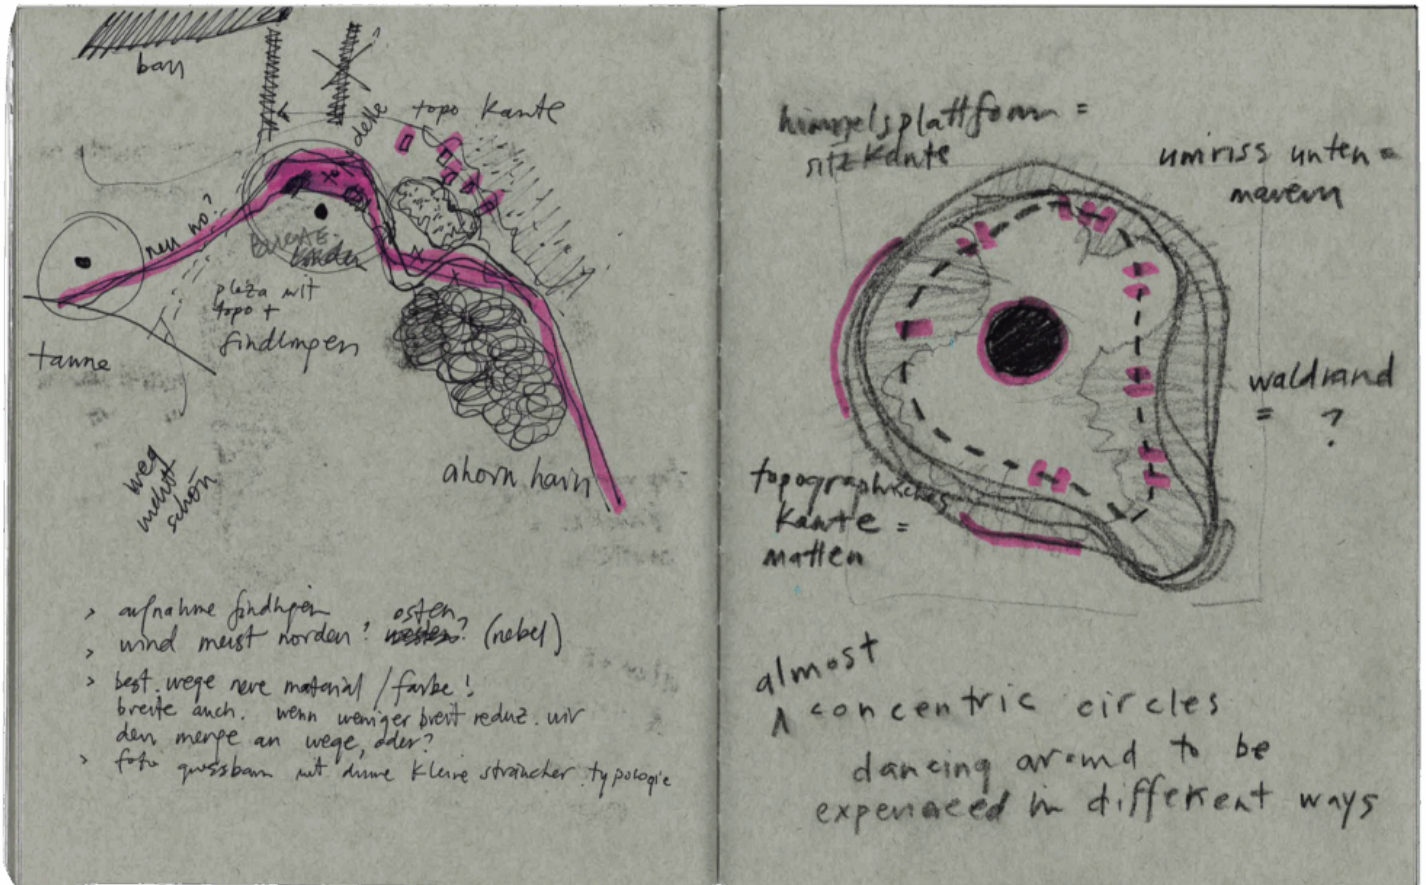 bau
topo kante
delle
neu wo?
plaza mit
topo +
findlingen
tanne
weg
nicht
schön
ahorn hain
> aufnahme findlingen
osten
> wind meist norden? westen? (nebel)
> best. wege neue material / farbe!
breite auch. wenn weniger breit reduz. wir
den menge an wege, oder?
> foto grossbaum mit dünne kleine sträucher typologie
himmelsplattform =
sitzkante
umriss unten =
mauern
waldrand
= ?
topographisches
kante =
matten
almost
concentric circles
dancing around to be
experienced in different ways